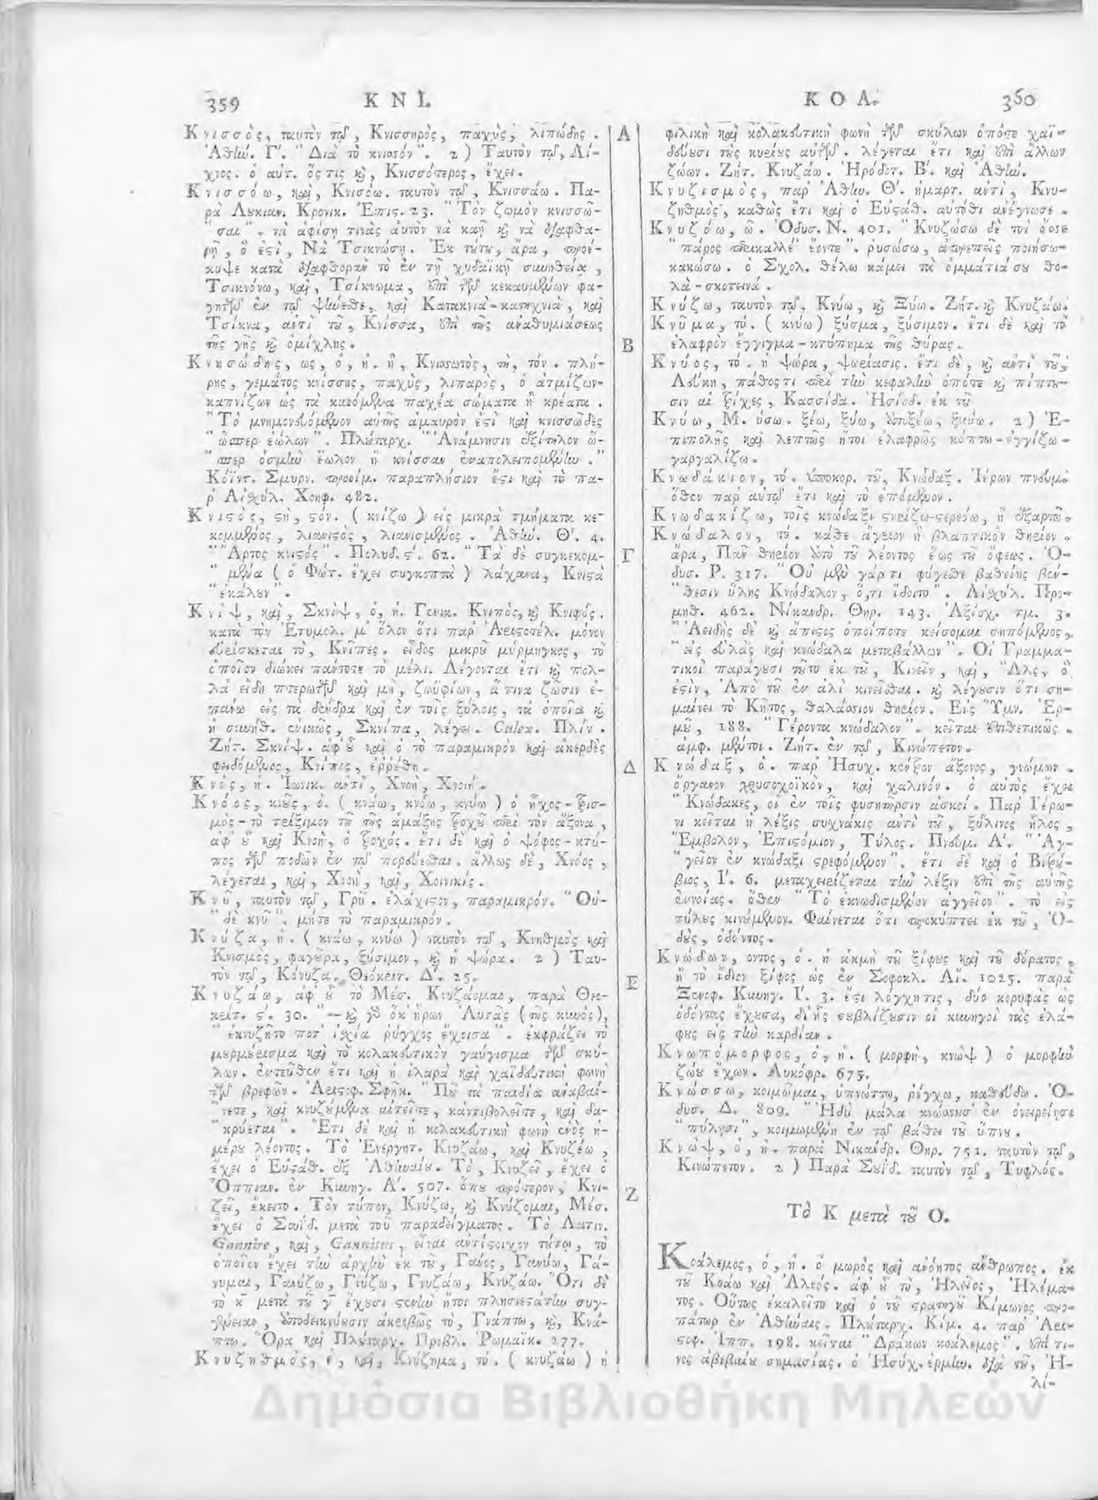 359 Κ Ν Ι.
Κνισσὸς, ταυτὸν τῷ, Κνισσηρὸς, παχὺς, λιπώδης.
Ἀθήν. Γ΄. "Διὰ τὸ κνισσόν". 2) Ταυτὸν τῷ, Λί-
χνος. ὁ αὐτ. ὅς τις καὶ, Κνισσότερος, ἔχει.
Κνισσόω, καὶ, Κνισόω. ταυτὸν τῷ, Κνισσάω. Πα-
ρὰ Λουκιαν. Κρονικ. Ἐπις. 23. "Τὸν ζωμὸν κνισσῶ-
"σαι". νὰ ἀφίσῃ τινὰς αὐτὸν νὰ καῇ καὶ νὰ διαφθα-
ρῇ, ὅ ἐςὶ, Νὰ Τσικνώσῃ. Ἐκ τούτου, ἄρα, προέ-
κυψε κατὰ διαφθορὰν τὸ ἐν τῇ χυδαϊκῇ συνηθείᾳ,
Τσικνόνω, καὶ, Τσίκνωμα, ἐπὶ τῶν κεκαυμένων φα-
γητῶν ἐν τῷ ψήνεσθαι, καὶ Κατακνιὰ-καταχνιὰ, καὶ
Τσίκνα, ἀντὶ τοῦ, Κνίσσα, ἐπὶ τῆς ἀναθυμιάσεως
τῆς γῆς καὶ ὁμίχλης.
ρης, γεμάτος κνίσσης, παχὺς, λιπαρὸς, ὁ ἀτμίζων-
καπνίζων ὡς τὰ καιόμενα παχέα σώματα ἢ κρέατα.
"Τὸ μνημονευόμενον αὐτῆς ἀμαυρὸν ἐςὶ καὶ κνισσῶδες
"ὥσπερ ἑώλων". Πλούταρχ. "Ἀνάμνησιν ἐξίτηλον ὥ-
"σπερ ὀσμὴν ἕωλον ἢ κνίσσαν ἐναπολειπομένην."
Κόϊντ. Σμυρν. προοίμ. παραπλήσιον ἔςι καὶ τὸ πα-
ρ᾽ Αἰσχύλ. Χοηφ. 482.
Κνιςὸς, ςὴ, ςόν. (κνίζω) εἰς μικρὰ τμήματα κε-
κομμένος, λιανιςὸς, λιανισμένος. Ἀθήν. Θ΄. 4.
"Ἄρτος κνιςός". Πολυδ. ς΄. 62. "Τὰ δὲ συγκεκομ-
"μένα (ὁ Φώτ. ἔχει συγκοπτὰ) λάχανα, Κνιςὰ
"ἐκάλουν".
Κνὶψ, καὶ, Σκνὶψ, ὁ, ἡ. Γενικ. Κνιπὸς, καὶ Κνιφός.
κατὰ τὸν Ἐτυμολ. μ᾽ ὅλον ὅτι παρ᾽ Ἀριςοτέλ. μόνον
εὑρίσκεται τὸ, Κνῖπες. εἶδος μικροῦ μύρμηγκος, τὸ
ὁποῖον διώκει πάντοτε τὸ μέλι. Λέγονται ἔτι καὶ πολ-
λὰ εἴδη πτερωτῶν καὶ μὴ, ζωϋφίων, ἅ τινα ζῶσιν ἐ-
πάνω εἰς τὰ δένδρα καὶ ἐν τοῖς ξύλοις, τὰ ὁποῖα καὶ
ἡ συνήθ. ἑνικῶς, Σκνίπα, λέγει. Culex. Πλίν.
Ζήτ. Σκνίψ. ἀφ᾽ οὗ καὶ ὁ τὸ παραμικρὸν καὶ ἀκερδὲς
φειδόμενος, Κνίπις, ἐῤῥέθη.
Κνόη, ἡ. Ἰωνικ. ἀντὶ, Χνοὴ, Χνοιή.
Κνόος, κνοῦς, ὁ. (κνάω, κνόω, κνύω) ὁ ἦχος-τρισ-
μὸς-τὸ τρίξιμον τοῦ τῆς ἁμάξης τροχοῦ περὶ τὸν ἄξονα,
ἀφ᾽ οὗ καὶ Κνοὴ, ὁ τροχός. ἔτι δὲ καὶ ὁ ψόφος-κτύ-
πος τῶν ποδῶν ἐν τῷ πορεύεσθαι. ἄλλως δὲ, Χνόος,
λέγεται, καὶ, Χνοὴ, καὶ, Χοινικίς.
Κνῦ, ταυτὸν τῷ, Γρῦ. ἐλάχιςον, παραμικρόν. "Οὐ-
"δὲ κνῦ". μήτε τὸ παραμικρόν.
Κνύζα, ἡ. (κνάω, κνύω) ταυτὸν τῷ, Κνηθμὸς καὶ
Κνισμὸς, φαγούρα, ξύσιμον, καὶ ἡ ψώρα. 2) Ταυ-
τὸν τῷ, Κόνυζα. Θεόκριτ. Δ΄. 25.
Κνυζάω, ἀφ᾽ οὗ τὸ Μέσ. Κνυζάομαι, παρὰ Θεο-
κρίτ. ς΄. 30.
"ἐκνυζῆτο ποτ᾽ ἰσχία ῥύγχος ἔχοισα". ἐκφράζει τὸ
μουρμούρισμα καὶ τὸ κολακευτικὸν γαύγισμα τῶν σκύ-
λων. ἐντεῦθεν ἔτι καὶ ἡ ἱλαρὰ καὶ χαϊδευτικὴ φωνὴ
τῶν βρεφῶν. Ἀριςοφ. Σφηκ.
"κρύεται". Ἔτι δὲ καὶ ἡ κολακευτικὴ φωνὴ ἑνὸς ἡ-
μέρου λέοντος. Τὸ Ἐνεργητ. Κνυζάω, καὶ Κνυζέω,
ἔχει ὁ Εὐςάθ. ἐξ Ἀθηναίου. Τὸ, Κνυζεῖ, ἔχει ὁ
Ὀππιαν. ἐν Κυνηγ. Α΄. 507. ὅπου πρότερον, Κνι-
ζεῖ, ἔκειτο. Τὸν τύπον, Κνύζω, καὶ Κνύζομαι, Μέσ.
ἔχει ὁ Σουΐδ. μετὰ τοῦ παραδείγματος. Τὸ Λατιν.
Gannire, καὶ, Gannitus, εἶναι ἀντίςοιχον τούτῳ, τὸ
ὁποῖον ἔχει τὴν ἀρχὴν ἐκ τοῦ, Γάνος, Γανύω, Γά-
νυμαι, Γανύζω, Γνύζω, Γνυζάω, Κνυζάω. Ὅτι δὲ
τὸ κ μετὰ τοῦ γ ἔχουσι ςενὴν ἤτοι πλησιεςάτην συγ-
γένειαν, ὑποδεικνύουσιν ἀκριβῶς τὸ, Γνάπτω, καὶ, Κνά-
πτω. Ὅρα καὶ Πλούταρχ. Προβλ. Ῥωμαϊκ. 277.
Κνυζηθμὸς, ὁ, καὶ, Κνύζημα, τό. (κνυζάω) ἡ
Α
Β
Γ
Δ
Ε
Ζ
Κ Ο Α. 360
φιλικὴ καὶ κολακευτικὴ φωνὴ τῶν σκύλων ὁπότε χαϊ-
δεύουσι τοὺς κυρίους αὐτῶν. λέγεται ἔτι καὶ ἐπὶ ἄλλων
ζώων. Ζήτ. Κνυζάω. Ἡρόδοτ. Β΄. καὶ Ἀθήν.
Κνυζισμὸς, παρ᾽ Ἀθήν. Θ΄. ἡμαρτ. ἀντὶ, Κνυ-
ζηθμὸς, καθὼς ἔτι καὶ ὁ Εὐςάθ. αὐτόθι ἀνέγνωσε.
Κνυζόω, ῶ. Ὀδυσ. Ν. 401. "Κνυζώσω δέ τοι ὄσσε
"πάρος περικαλλέ᾽ ἐόντε". ῥυσώσω, ἀπρεπεῖς ποιήσω-
κακώσω. ὁ Σχολ. θέλω κάμει τὰ ὀμμάτιά σου θο-
λὰ-σκοτεινά.
Κνύζω, ταυτὸν τῷ, Κνύω, καὶ Ξύω. Ζήτ. καὶ Κνυζάω.
Κνύμα, τό. (κνύω) ξύσμα, ξύσιμον. ἔτι δὲ καὶ τὸ
ἐλαφρὸν ἔγγιγμα-κτύπημα τῆς θύρας.
Κνύος, τό. ἡ ψώρα, ψωρίασις. ἔτι δὲ, καὶ ἀντὶ τοῦ,
Λεύκη, πάθος τι περὶ τὴν κεφαλὴν ὁπότε καὶ πίπτου-
σιν αἱ τρίχες, Κασσίδα. Ἡσίοδ. ἐκ τοῦ
Κνύω, Μ. ύσω. ξέω, ξύω, ὑποξέω, ξυύω. 2) Ἐ-
πιπολῆς καὶ λεπτῶς ἤτοι ἐλαφρῶς κόπτω-ἐγγίζω-
γαργαλίζω.
Κνωδάκιον, τό. ὑποκορ. τοῦ, Κνώδαξ. Ἱέρων πνευμ.
ὅθεν παρ᾽ αὐτῷ ἔτι καὶ τὸ ἑπόμενον.
Κνωδακίζω, τοῖς κνώδαξι ςηρίζω-ςερεόω, ἢ ἐξαρτῶ.
Κνώδαλον, τό. κάθε ἄγριον ἢ βλαπτικὸν θηρίον.
ἄρα, Πᾶν θηρίον ἀπὸ τοῦ λέοντος ἕως τοῦ ὄφεως. Ὀ-
δυσ. Ρ. 317. "Οὐ μὲν γάρ τι φύγεσκε βαθείης βέν-
"θεσιν ὕλης Κνώδαλον, ὅ,τι ἴδοιτο". Αἰσχύλ. Προ-
μηθ. 462. Νίκανδρ. Θηρ. 143. Ἀξίοχ. τμ. 3.
"Ἀειδὴς δὲ καὶ ἄπιςος ὁποίποτε κείσομαι σηπόμενος,
"εἰς εὐλὰς καὶ κνώδαλα μεταβάλλων". Οἱ Γραμμα-
τικοὶ παράγουσι τοῦτο ἐκ τοῦ, Κινεῖν, καὶ, Ἅλς, ὅ
ἐςὶν, Ἀπὸ τοῦ ἐν ἁλὶ κινεῖσθαι. καὶ λέγουσιν ὅτι ση-
μαίνει τὸ Κῆτος, θαλάσσιον θηρίον. Εἰς Ὕμν. Ἑρ-
μοῦ, 188. "Γέροντα κνώδαλον". κεῖται ἐπιθετικῶς.
ἀμφ. μέντοι. Ζήτ. ἐν τῷ, Κινώπετον.
Κνώδαξ, ὁ. παρ᾽ Ἡσυχ. κέντρον ἄξονος, γνώμην.
ὄργανον χρυσοχοϊκὸν, καὶ χαλινόν. ὁ αὐτὸς ἔχει
"Κνώδακες, οἱ ἐν τοῖς φυσητῆρσιν ἀσκοί. Παρ᾽ Γέρω-
νι κεῖται ἡ λέξις συχνάκις ἀντὶ τοῦ, ξύλινος ἧλος,
Ἔμβολον, Ἐπιςόμιον, Τύλος. Πνευμ. Α΄. "Ἀγ-
"γεῖον ἐν κνώδαξι ςρεφόμενον". ἔτι δὲ καὶ ὁ Βιτρού-
βιος, Ι΄. 6. μεταχειρίζεται τὴν λέξιν ἐπὶ τῆς αὐτῆς
ἐννοίας. ὅθεν "Τὸ ἐκνωδισμένον ἀγγεῖον". τὸ εἰς
τύλους κινούμενον. Φαίνεται ὅτι προκύπτει ἐκ τοῦ, Ὀ-
δοὺς, ὀδόντος.
Κνώδων, οντος, ὁ. ἡ ἀκμὴ τοῦ ξίφους καὶ τοῦ δόρατος,
ἢ τὸ ἴδιον ξίφος ὡς ἐν Σοφοκλ. Αἴ. 1025. παρὰ
Ξενοφ. Κυνηγ. Ι΄. 3. ἔςι λόγχη τις, δύο κορυφὰς ὡς
ὀδόντας ἔχουσα, δι᾽ ἧς σουβλίζουσιν οἱ κυνηγοὶ τὰς ἐλά-
φους εἰς τὴν καρδίαν.
Κνωπόμορφος, ὁ, ἡ. (μορφὴ, κνώψ) ὁ μορφὴν
ζώου ἔχων. Λυκόφρ. 675.
Κνώσσω, κοιμῶμαι, ὑπνώττω, ῥέγχω, καθεύδω. Ὀ-
δυσ. Δ. 809. "Ἡδὺ μάλα κνώσσουσ᾽ ἐν ὀνειρείῃσι
"πύλῃσι", κοιμωμένη ἐν τῷ βάθει τοῦ ὕπνου.
Κνὼψ, ὁ, ἡ. παρὰ Νικάνδρ. Θηρ. 751. ταυτὸν τῷ,
Κινώπετον. 2) Παρὰ Σουΐδ. ταυτὸν τῷ, Τυφλός.
Τὸ Κ μετὰ τοῦ Ο.
Κοάλεμος, ὁ, ἡ. ὁ μωρὸς καὶ ἀνόητος ἄνθρωπος. ἐκ
τοῦ Κοάω καὶ Ἀλεός. ἀφ᾽ οὗ τὸ, Ἠλεὸς, Ἠλέμα-
τος. Οὕτως ἐκαλεῖτο καὶ ὁ τοῦ ςρατηγοῦ Κίμωνος προ-
πάτωρ ἐν Ἀθήναις. Πλούταρχ. Κίμ. 4. παρ᾽ Ἀρι-
ςοφ. Ἱππ. 198. κεῖται "Δράκων κοάλεμος". ἐπί τι-
νος ἀβεβαίου σημασίας. ὁ Ἡσύχ. ἑρμην. διὰ τοῦ, Ἠ-
λί-
Δημόσια Βιβλιοθήκη Μηλεών